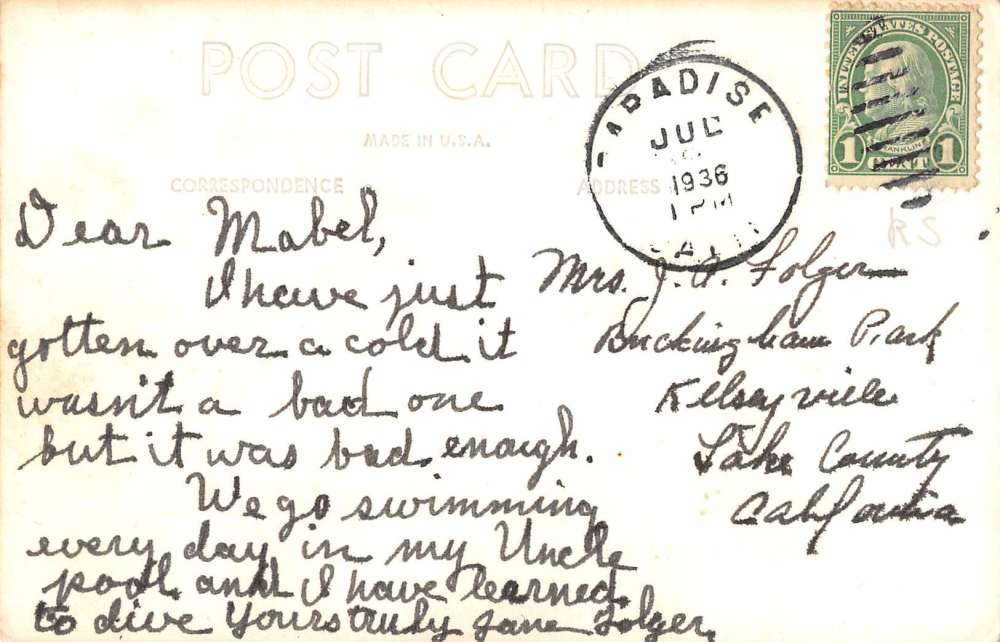 POST CARD
MADE IN U.S.A.
CORRESPONDENCE
ADDRESS
PARADISE
JUL
1936
1 PM
CALIF
UNITED STATES POSTAGE
FRANKLIN
1 CENT 1
RS
Dear Mabel,
I have just
gotten over a cold it
wasn't a bad one
but it was bad enough.
We go swimming
every day in my Uncle
pool and I have learned
to dive Yours truly Jane Folger.
Mrs. J. A. Folger
Buckingham Park
Kelseyville
Lake County
California